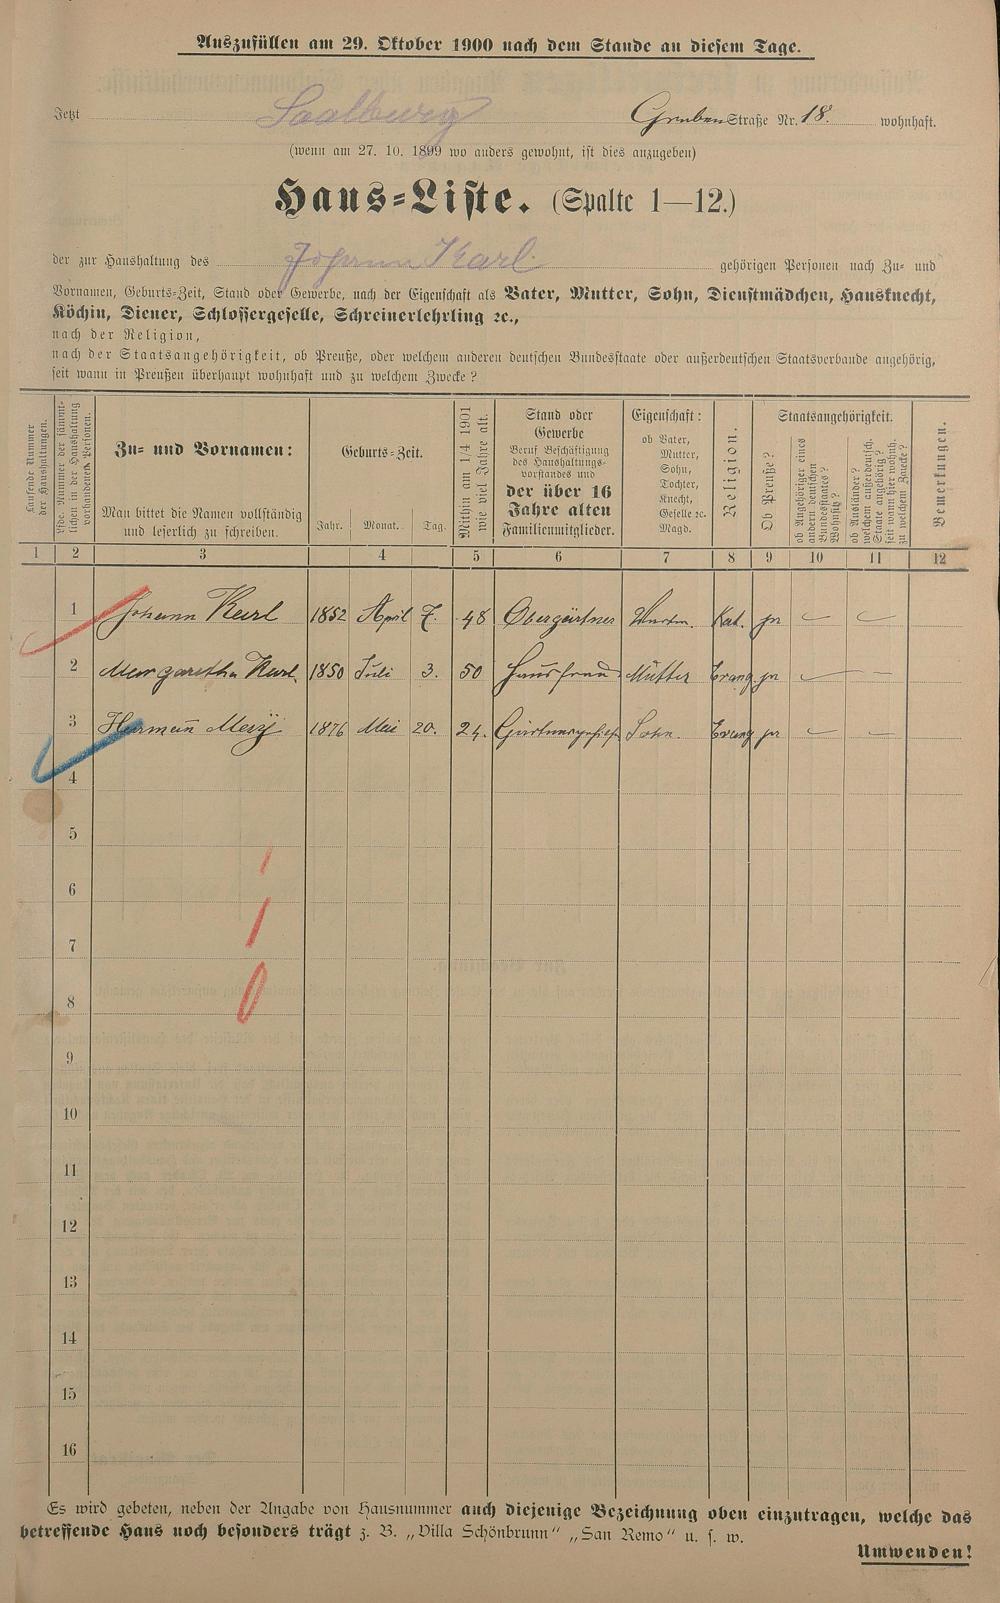 Auszufüllen am 29. Oktober 1900 nach dem Stande an diesem Tage.
Jetzt Saalburg Gruben Straße Nr. 18. wohnhaft.
(wenn am 27. 10. 1899 wo anders gewohnt, ist dies anzugeben)
Haus-Liste. (Spalte 1—12.)
der zur Haushaltung des Johann Karl gehörigen Personen nach Zu- und
Vornamen, Geburts-Zeit, Stand oder Gewerbe, nach der Eigenschaft als Vater, Mutter, Sohn, Dienstmädchen, Hausknecht,
Köchin, Diener, Schlossergeselle, Schreinerlehrling ꝛc.,
nach der Religion,
nach der Staatsangehörigkeit, ob Preuße, oder welchem anderen deutschen Bundesstaate oder außerdeutschen Staatsverbande angehörig,
seit wann in Preußen überhaupt wohnhaft und zu welchem Zwecke?
Laufende Nummer
der Haushaltungen.
Lfde. Nummer der sämmt-
lichen in der Haushaltung
vorhandenen Personen.
Zu- und Vornamen:
Man bittet die Namen vollständig
und leserlich zu schreiben.
Geburts-Zeit.
Jahr. Monat. Tag.
Mithin am 1/4 1901
wie viel Jahre alt.
Stand oder
Gewerbe
Beruf Beschäftigung
des Haushaltungs-
vorstandes und
der über 16
Jahre alten
Familienmitglieder.
Eigenschaft:
ob Vater,
Mutter,
Sohn,
Tochter,
Knecht,
Geselle ꝛc.
Magd.
Religion.
Staatsangehörigkeit.
Ob Preuße?
ob Angehöriger eines
andern deutschen
Bundesstaates?
Wohnsitz?
ob Ausländer?
welchem außerdeutsch.
Staate angehörig?
seit wann hier wohnh.
zu welchem Zwecke?
Bemerkungen.
1 2 3 4 5 6 7 8 9 10 11 12
1 Johann Karl 1852 April 7. 48 Obergärtner Kat. ja — —
2 Margaretha Karl. 1850 Juli 3. 50 Hausfrau Mutter Evang. ja — —
3 Hermann 1876 Mai 20. 24. Sohn. Evang ja — —
4
5
6
7
8
9
10
11
12
13
14
15
16
Es wird gebeten, neben der Angabe von Hausnummer auch diejenige Bezeichnung oben einzutragen, welche das
betreffende Haus noch besonders trägt z. B. „Villa Schönbrunn“ „San Remo“ u. s. w.
Umwenden!